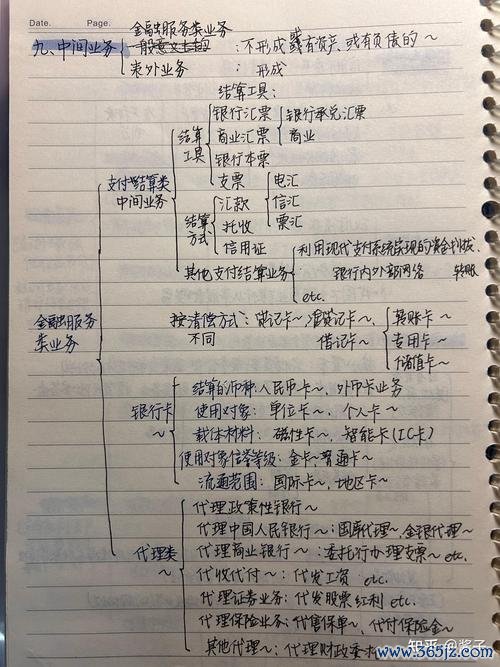 Date.    Page.
金融服务类业务
九、中间业务    :不形成或有资产、或有负债的~
表外业务 : 形成
结算工具:
银行汇票 银行承兑汇票
结算工具 商业汇票 商业
银行本票
支付结算类中间业务 支票 电汇
汇款 信汇
结算方式 托收 票汇
信用证 利用现代支付系统实现的资金划拨
其他支付结算业务 银行内外部网络 转账
etc.
金融服务类业务 按清偿方式不同:贷记卡~,准贷记卡~、 转账卡~
借记卡~ 专用卡~
储值卡~
结算的币种:人民币卡~、外币卡业务
银行卡~ 使用对象:单位卡~、个人卡~
载体材料:磁性卡~、智能卡(IC卡)
使用对象信誉等级:金卡~普通卡~
流通范围:国际卡~,地区卡~
代理政策性银行~
代理中国人民银行~:国库代理~,金银代理~
代理类~ 代理商业银行~:委托行办理支票~ etc.
代收代付~:代发工资 etc.
代理证券业务:代发股票红利 etc.
代理保险业务:代售保单~、代付保险金~
其他代理~:代理财政委
知乎 @酱子
www.365jz.com